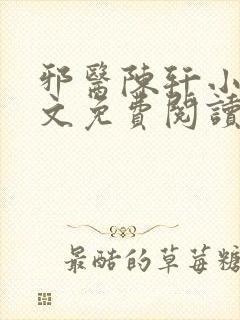 邪醫陳軒小
文免費閱讀
最酷的草莓糖